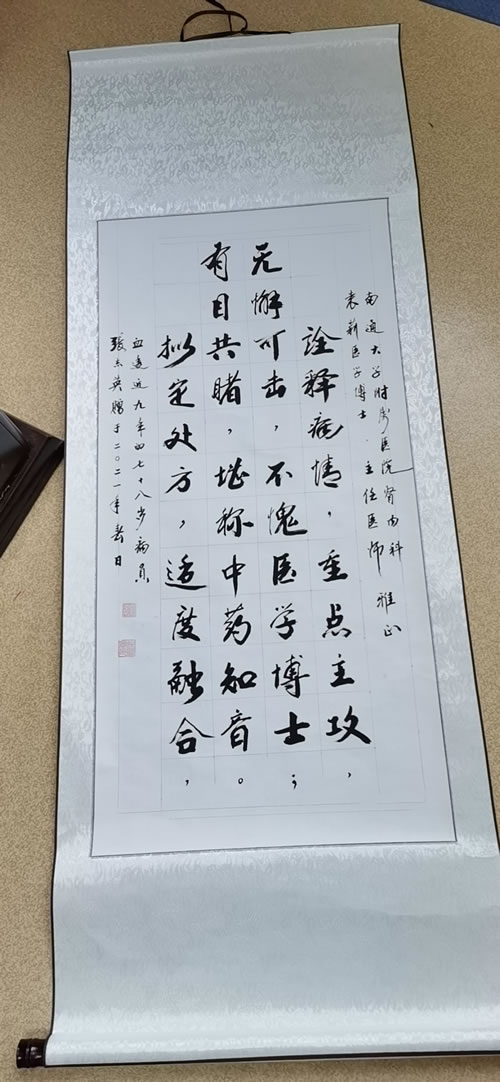 南通大学附属医院肾内科
袁医学博士、主任医师 雅正
诠释病情，重点主攻，
无懈可击，不愧医学博士；
拟定处方，适度融合，
有目共睹，堪称中药知音。
血透近九年的七十八岁病员
张英赠于二〇二一年春日